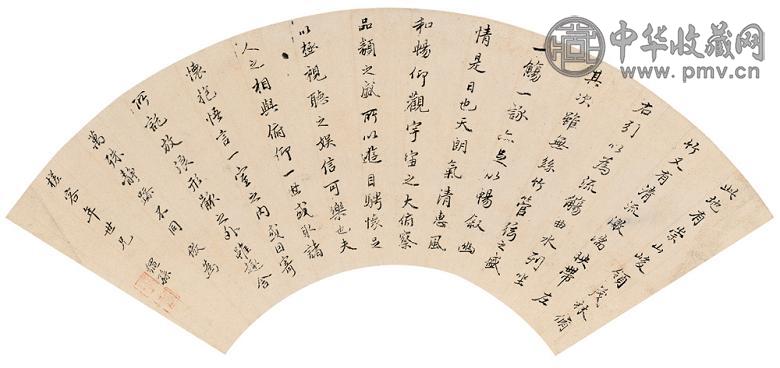 中华收藏网
www.pmv.cn
此地有崇山峻領茂林脩
竹又有清流激湍映帶左
右引以為流觴曲水列坐
其次雖無絲竹管絃之盛
一觴一詠亦足以暢敘幽
情是日也天朗氣清惠風
和暢仰觀宇宙之大俯察
品類之盛所以遊目騁懷足
以極視聽之娛信可樂也夫
人之相與俯仰一世或取諸
懷抱悟言一室之內或因寄
所託放浪形骸之外雖趣舍
萬殊靜躁不同
年世兄